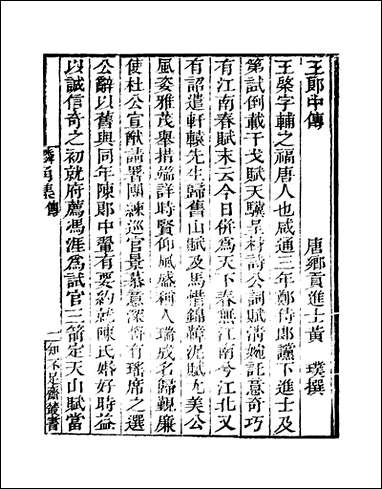 王郎中傳
唐鄉貢進士黃 璞撰
王棨字輔之福唐人也咸通三年鄭侍郎讜下進士及
第試倒載干戈賦天驥呈材詩公詞賦清婉託意奇巧
有江南春賦末云今日併為天下春無江南兮江北又
有詔遣軒轅先生歸舊山賦及馬惜錦障泥賦尤美公
風姿雅茂舉措端詳時賢仰風盛稱人瑞成名歸覲廉
使杜公宣猷請署團練巡官景慕意深將有瑤席之選
公辭以舊與同年陳郎中鞏有要約就陳氏婚好時益
以誠信奇之初就府薦馮涯為試官三箭定天山賦當
麟角集傳 一 知不足齋叢書